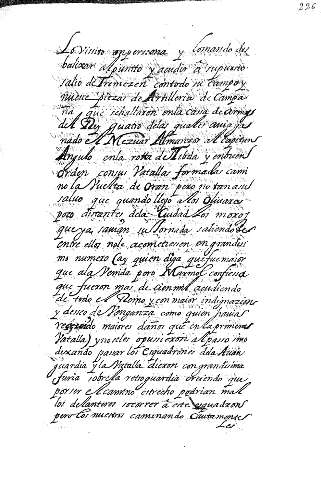 226
Lo Visito en persona y tomando des
baluar al puntto y acudir a su puesto
salio de Tremezen con todo su campo y
nueue piezas de Artilleria de Campa
ña que se hallaron en la Casa de Armas
del Rey quatro de las quales auia ga
nado el Mezuar Almanzor al Capitan
Angulo en la rotta de Tibda y en buen
orden con sus Vatallas formadas cami
no la Vuelta de Oran pero no tan a su
saluo que quando llego a los Oliuares
poco distantes de la Ciudad los moros
que ya sauian su Jornada saliendo de
entre ellos no le acometiesen en grandissi
mo numero (ay quien diga que fue maior
que a la Venida pero Marmol confiesa
que fueron mas de cien mil acudiendo
de todo el Reino y con maior indignazion
y deseo de Venganza como quien hauia
reziuido maiores daños que en la primera
Vatalla) y no se les opusieron al paso sino
dexando pasar los Esquadrones de la Auan
guardia y la Vatalla dieron con grandissima
furia sobre la retroguardia creiendo que
por ser el camino estrecho podrian mal
los delanteros socorrer a este esquadron
pero los nuestros caminando Cautamente
les